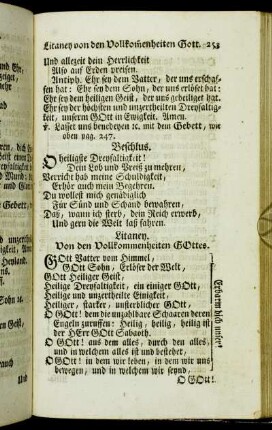 Litaney von den Vollkom̄enheiten Gott. 253
Und allezeit dein Herrlichkeit
Also auf Erden preisen.
Antiph. Ehr sey dem Vatter, der uns erschaf-
fen hat: Ehr sey dem Sohn, der uns erlöset hat:
Ehr sey dem heiligen Geist, der uns geheiliget hat.
Ehr sey der höchsten und unzertheilten Dreyfaltig-
keit, unserm GOtt in Ewigkeit. Amen.
℣. Lasset uns benedeyen ꝛc. mit dem Gebett, wie
oben pag. 247.
Beschlus.
O heiligste Dreyfaltigkeit!
Dein Lob und Preiß zu mehren,
Verricht hab meine Schuldigkeit,
Erhör auch mein Begehren.
Du wollest mich genädiglich
Für Sünd und Schand bewahren,
Daß, wann ich sterb, dein Reich ererb,
Und gern die Welt laß fahren.
Litaney.
Von den Vollkommenheiten GOttes.
GOtt Vatter vom Himmel,
GOtt Sohn, Erlöser der Welt,
GOtt Heiliger Geist,
Heilige Dreyfaltigkeit, ein einiger GOtt,
Heilige und unzertheilte Einigkeit,
Heiliger, starker, unsterblicher GOtt,
O GOtt! dem die unzahlbare Schaaren deren
Engeln zuruffen: Heilig, heilig, heilig ist
der HErr GOtt Sabaoth.
O GOtt! aus dem alles, durch den alles,
und in welchem alles ist und bestehet,
O GOtt! in dem wir leben, in dem wir uns
bewegen, und in welchem wir seynd,
Erbarm dich unser
O GOtt!